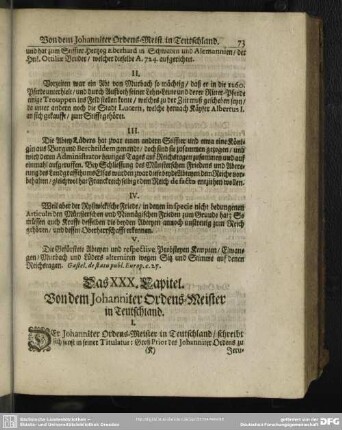 Von dem Johanniter Ordens-Meist. in Teutschland. 73
und hat zum Stiffter Hertzog Eberhard in Schwaben und Alemannien / der
Heil. Ottilia Bruder / welcher dieselbe A. 724. auffgerichtet.
II.
Vorzeiten war ein Abt von Murbach so mächtig / daß er in die 1260.
Pferde unterhielt / und durch Auffboth seiner Lehn-Leute und derer Ritter-Pferde
einige Trouppen ins Feld stellen konte / welches zu der Zeit muß geschehen seyn /
da unter andern noch die Stadt Lucern / welche hernach Käyser Albertus I.
an sich gekaufft / zum Stifft gehöret.
III.
Die Abtey Lüders hat zwar einen andern Stiffter und etwa eine Köni-
gin aus Burgund
einmahl auffgeruffen. Bey Schliessung des Münsterischen Friedens und Abtre-
tung des Landgraffthums Elsas wurden zwar diese beyde Abteyen dem Reiche vor-
behalten / gleichwol hat Franckreich selbige dem Reich de facto entziehen wollen.
IV.
Weil aber der Roswickische Friede / in denen in specie nicht benennten
Articuln den Münsterischen und Nimägischen Frieden zum Grunde hat; So
müssen auch Krafft desselben die beyden Abteyen annoch unstreitig zum Reich
gehören / und dessen Oberherrschafft erkennen.
V.
Die Gefürsteten Abteyen und respective Probsteyen Kempten / Elwan-
gen / Murbach und Lüders alterniren wegen Sitz und Stimme auf denen
Reichstagen. Gastel. de statu publ. Europ. c. 27.
Das XXX. Capitel.
Von dem Johanniter Ordens-Meister
in Teutschland.
I.
DEr Johanniter Ordens-Meister in Teutschland / schreibt
sich jetzt in seiner Titulatur: Groß Prior des Johanniter Ordens zu
(K) Jeru-